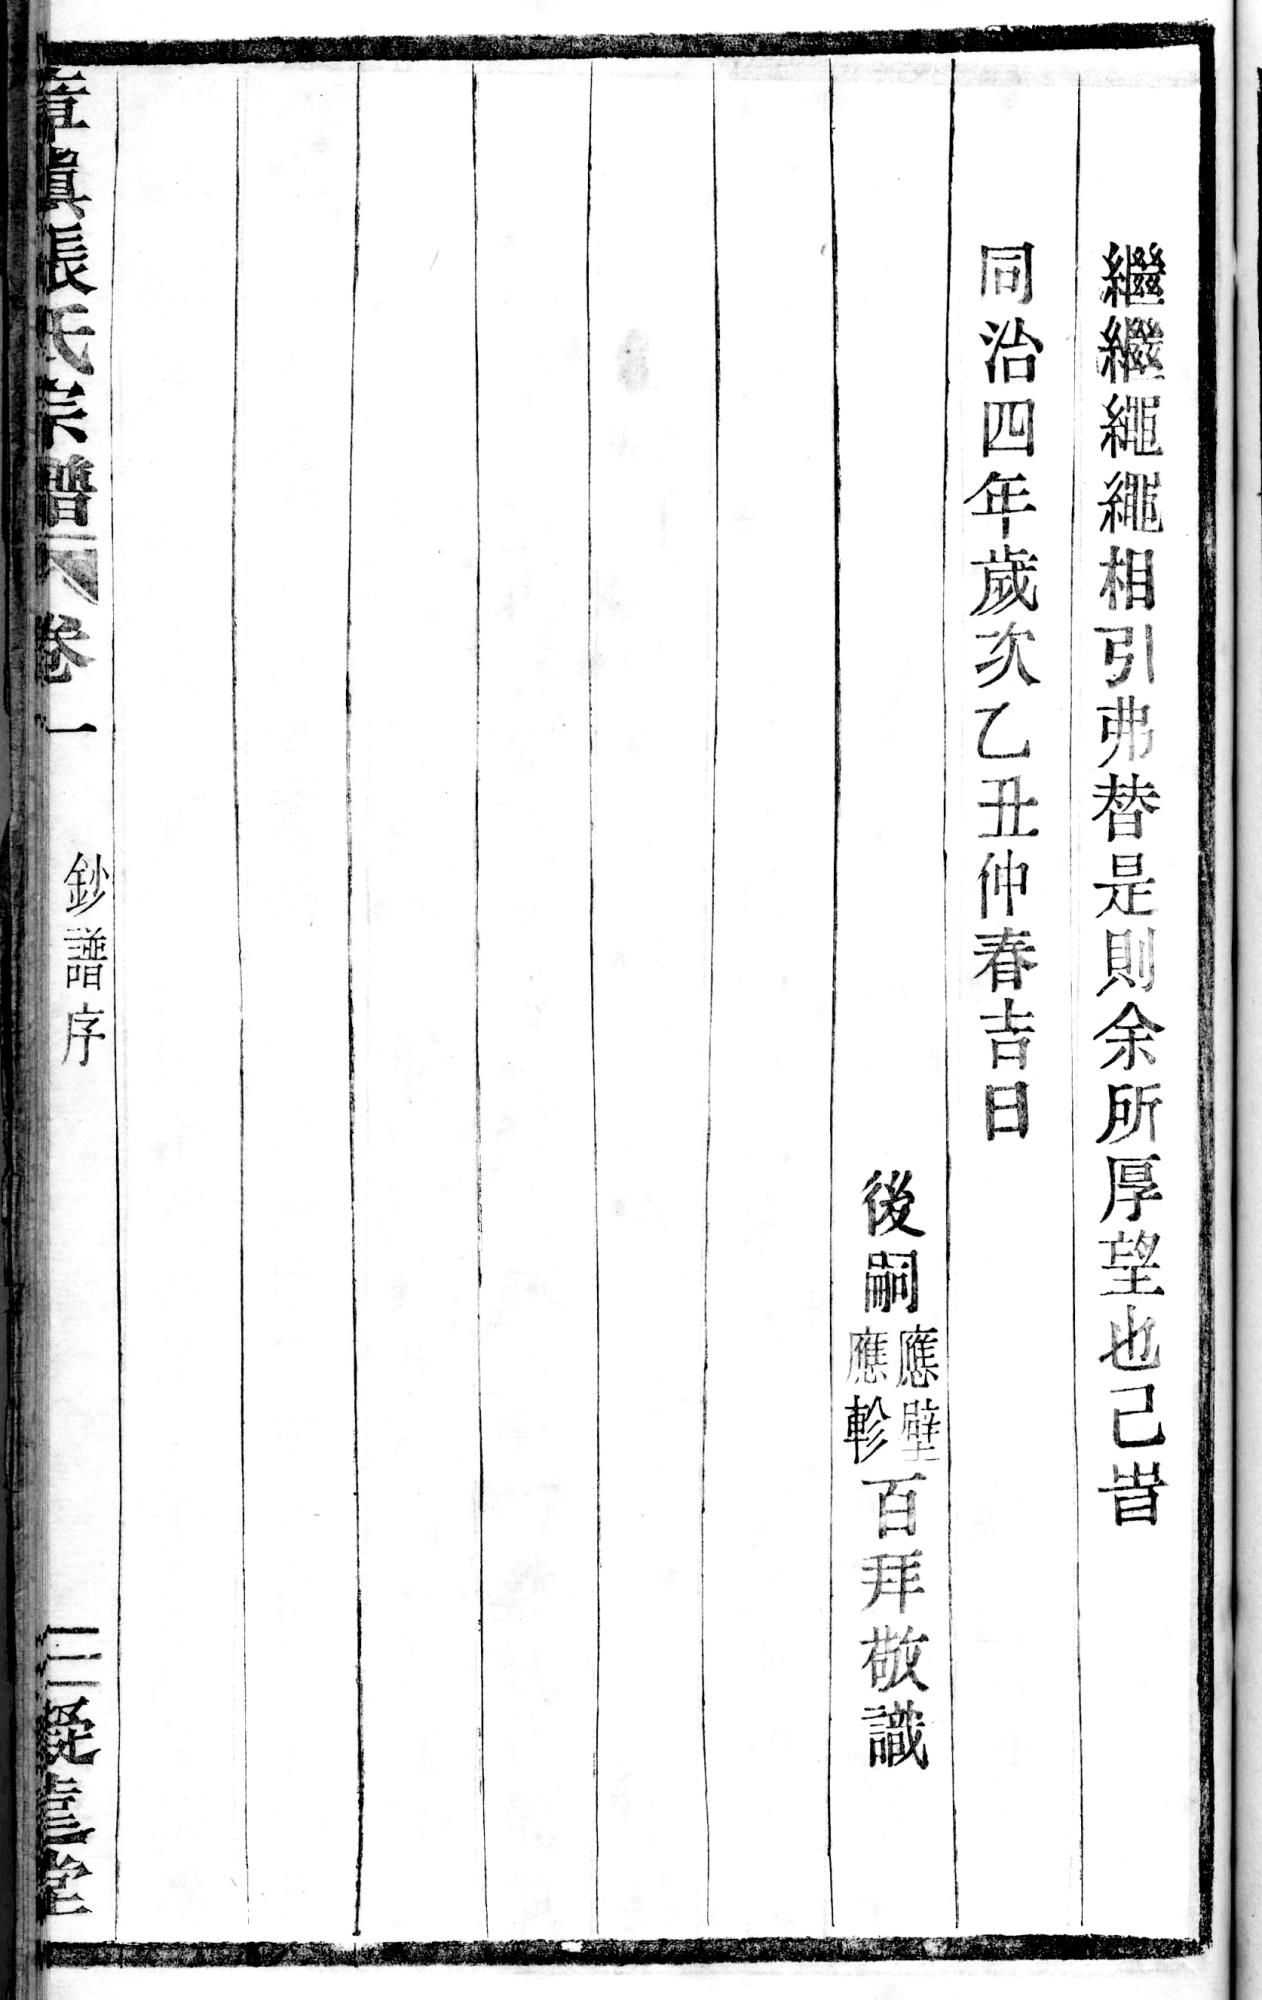 繼繼繩繩相引弗替是則余所厚望也己旹
同治四年歲次乙丑仲春吉日
後嗣
應壁
應軫
百拜敬識
章鎮張氏宗譜 卷一 鈔譜序 三 堂